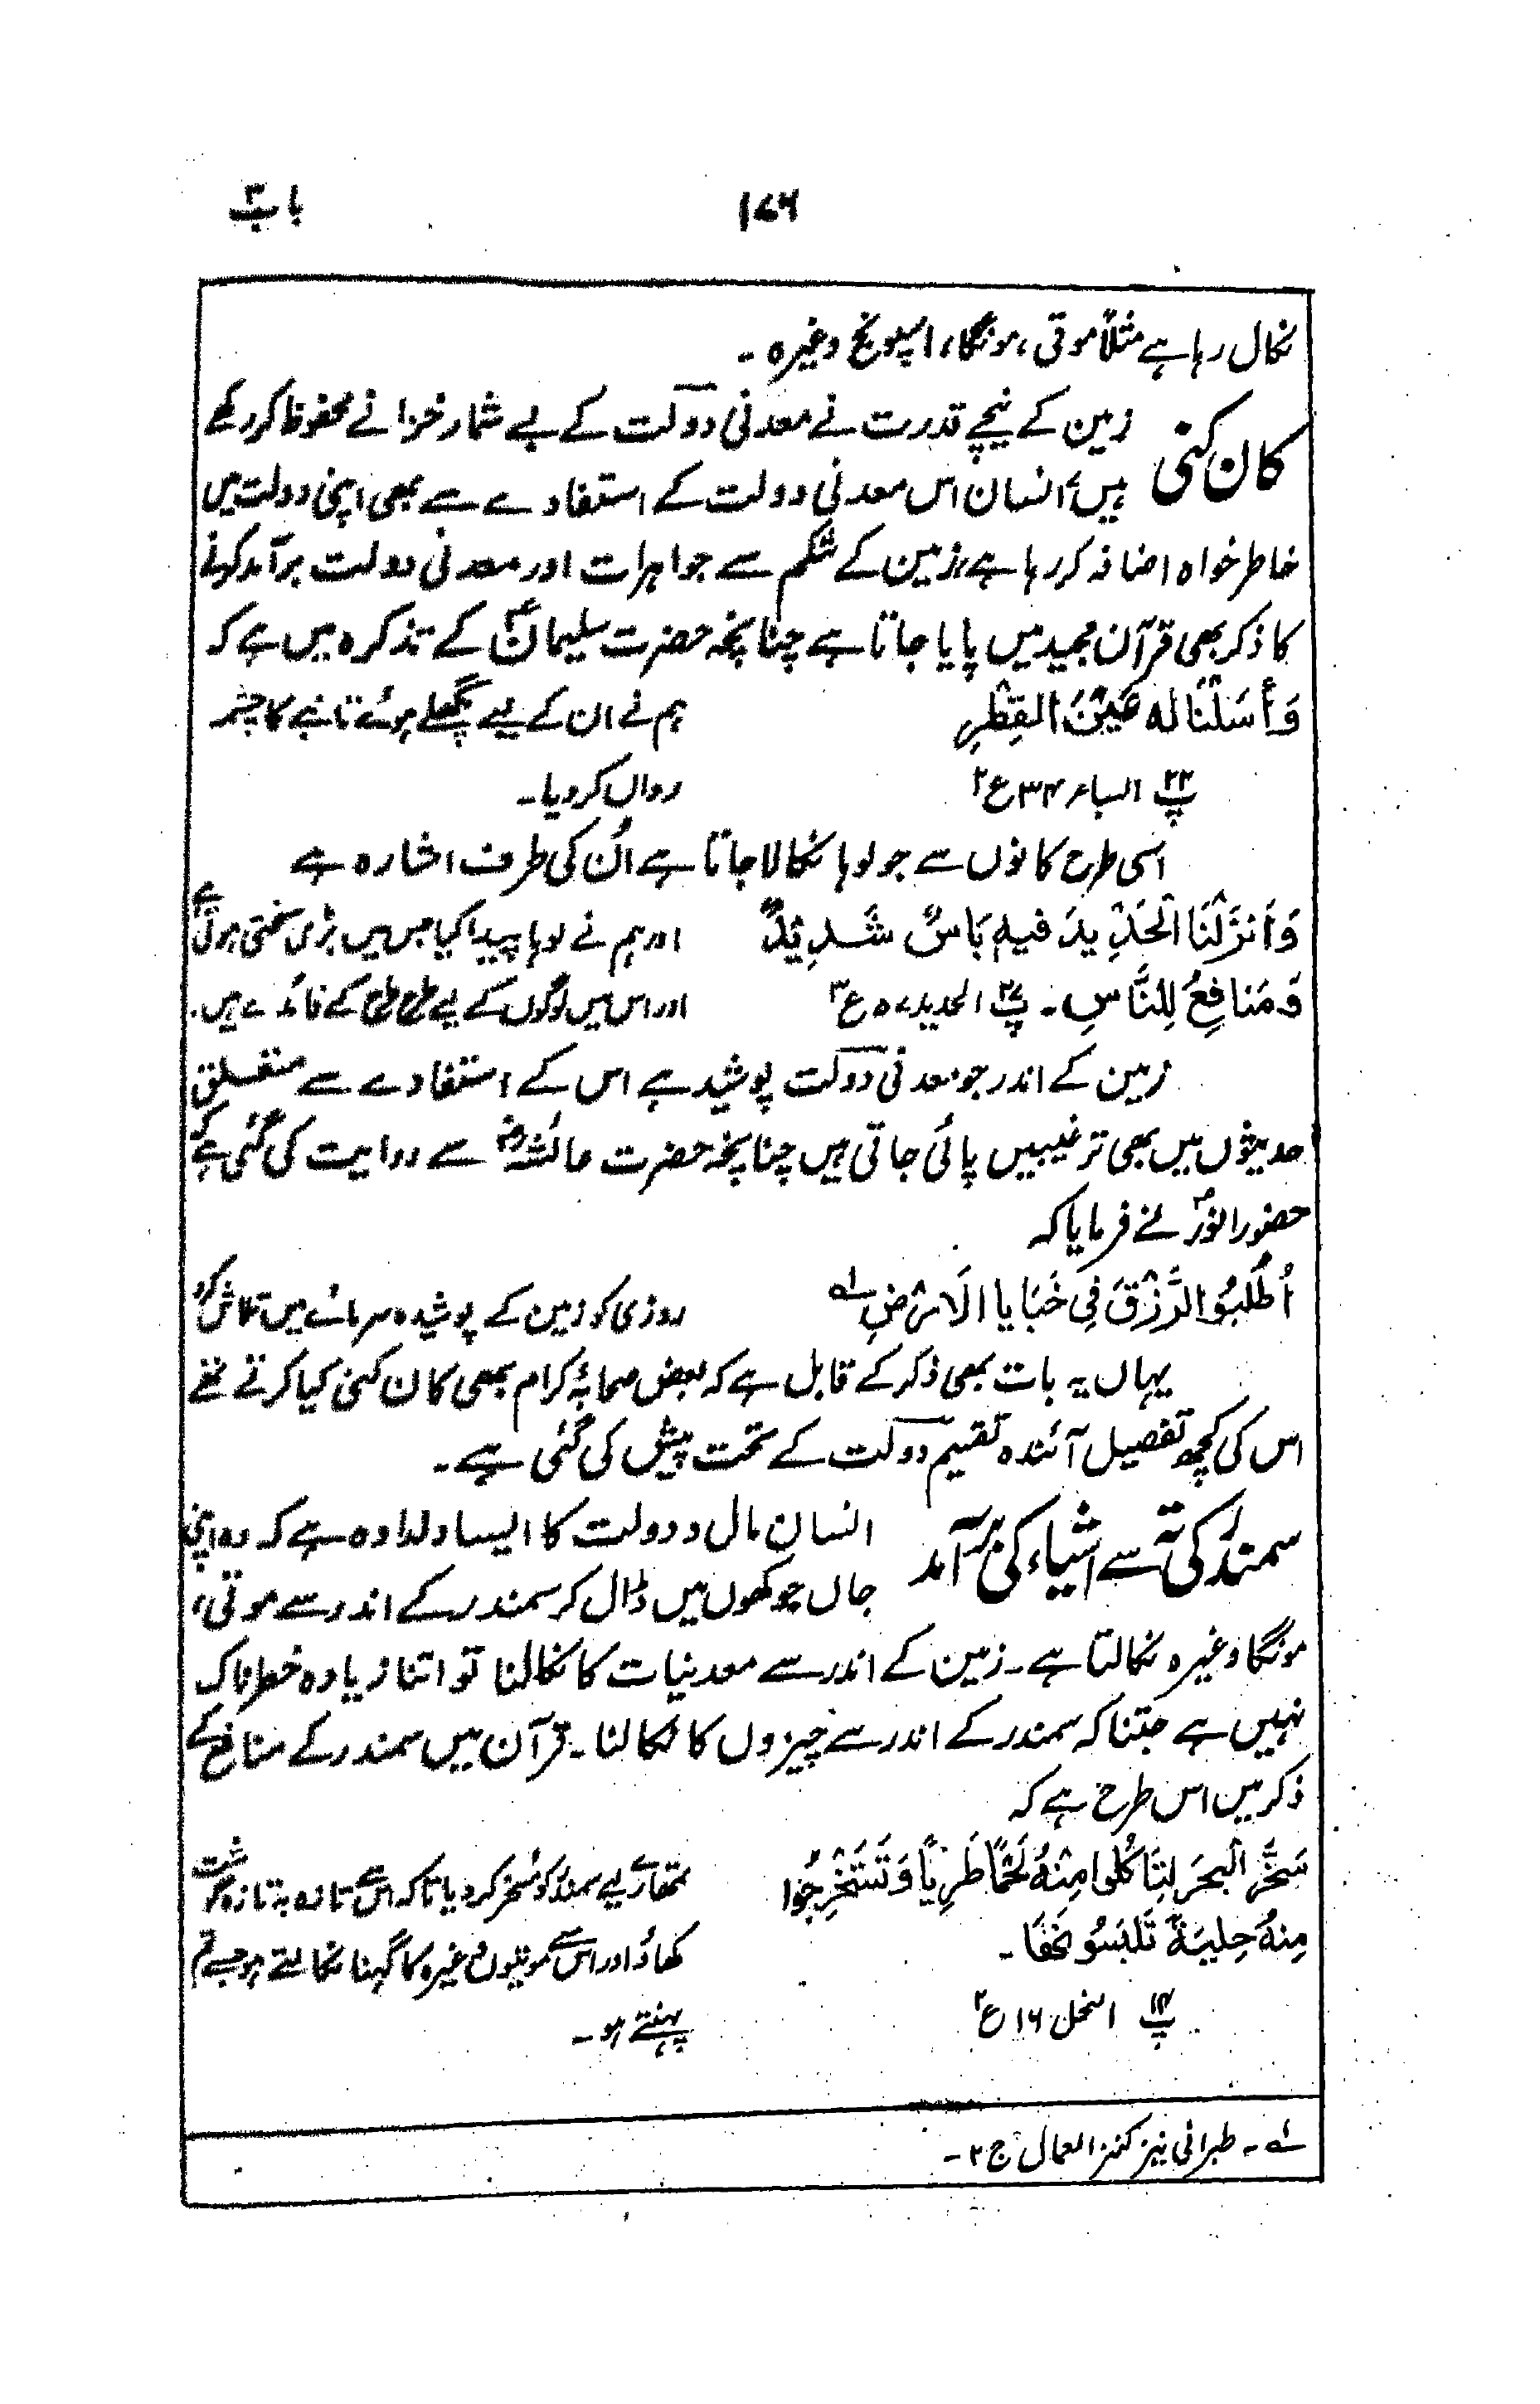 ۱۷۶
باب ۳
نکال رہا ہے مثلاً موتی، مونگا، اسپلونج وغیرہ ۔
کان کنی
زمین کے نیچے قدرت نے معدنی دولت کے بے شمار خزانے محفوظ کر رکھے
ہیں، انسان اس معدنی دولت کے استفادے سے بھی اپنی دولت میں
خاطر خواہ اضافہ کر رہا ہے، زمین کے شکم سے جواہرات اور معدنی دولت برآمد کرنے
کا ذکر بھی قرآن مجید میں پایا جاتا ہے چنانچہ حضرت سلیمانؑ کے تذکرہ میں ہے کہ
وَأَسَلْنَا لَهُ عَيْنَ القِطْرِ
ہم نے ان کے لیے پگھلے ہوئے تانبے کا چشمہ
پ۲۲ السباء ۳۴ ع۲
رواں کر دیا ۔
اسی طرح کانوں سے جو لوہا نکالا جاتا ہے اُن کی طرف اشارہ ہے
وَاَنزَلْنَا الْحَدِيدَ فيهِ بَاسٌ شَدِيْدٌ
اور ہم نے لوہا پیدا کیا جس میں بڑی سختی ہوتی ہے
وَمَنافِعُ لِلنَّاسِ ۔ پ۲۷ الحدید ۵۷ ع۳
اور اس میں لوگوں کے لیے طرح طرح کے فائدے ہیں.
زمین کے اندر جو معدنی دولت پوشید ہے اس کے استفادے سے متعلق
حدیثوں میں بھی ترغیبیں پائی جاتی ہیں چنانچہ حضرت عائشہؓ سے روایت کی گئی ہے کہ
حضور انورؐ نے فرمایا کہ
اُطْلُبُو الرِّزْقَ فِي خَبَايا الَارْضِ لہ
روزی کو زمین کے پوشیدہ سرمائے میں تلاش کرو
یہاں یہ بات بھی ذکر کے قابل ہے کہ بعض صحابۂ کرام بھی کان کنی کیا کرتے تھے
اس کی کچھ تفصیل آئندہ تقسیم دولت کے تحت پیش کی گئی ہے ۔
سمندر کی تہ سے اشیاء کی برآمد
انسان مال و دولت کا ایسا دلدادہ ہے کہ وہ اپنی
جاں جوکھوں میں ڈال کر سمندر کے اندر سے موتی،
مونگا وغیرہ نکالتا ہے ۔ زمین کے اندر سے معدنیات کا نکالنا تو اتنا زیادہ خطرناک
نہیں ہے جتنا کہ سمندر کے اندر سے چیزوں کا نکالنا ۔ قرآن میں سمندر کے منافع کے
ذکر میں اس طرح ہے کہ
سَخَّرَ الْبَحرَ لِتَاكُلوا مِنْهُ لَحْمًا طَرِيًّا وَتَسْتَخْرِجُوا
تمھارے لیے سمندر کو مسخر کر دیا تاکہ اس سے تازہ بہ تازہ گوشت
مِنهُ حِليَةً تَلبَسُونَهَا ۔
کھاؤ اور اس سے موتیوں وغیرہ کا گہنا نکالتے ہو جسے تم
پ۱۴ النحل ۱۶ ع۲
پہنتے ہو ۔
لہ ۔ طبرانی نیز کنز العمال ج ۲ ۔